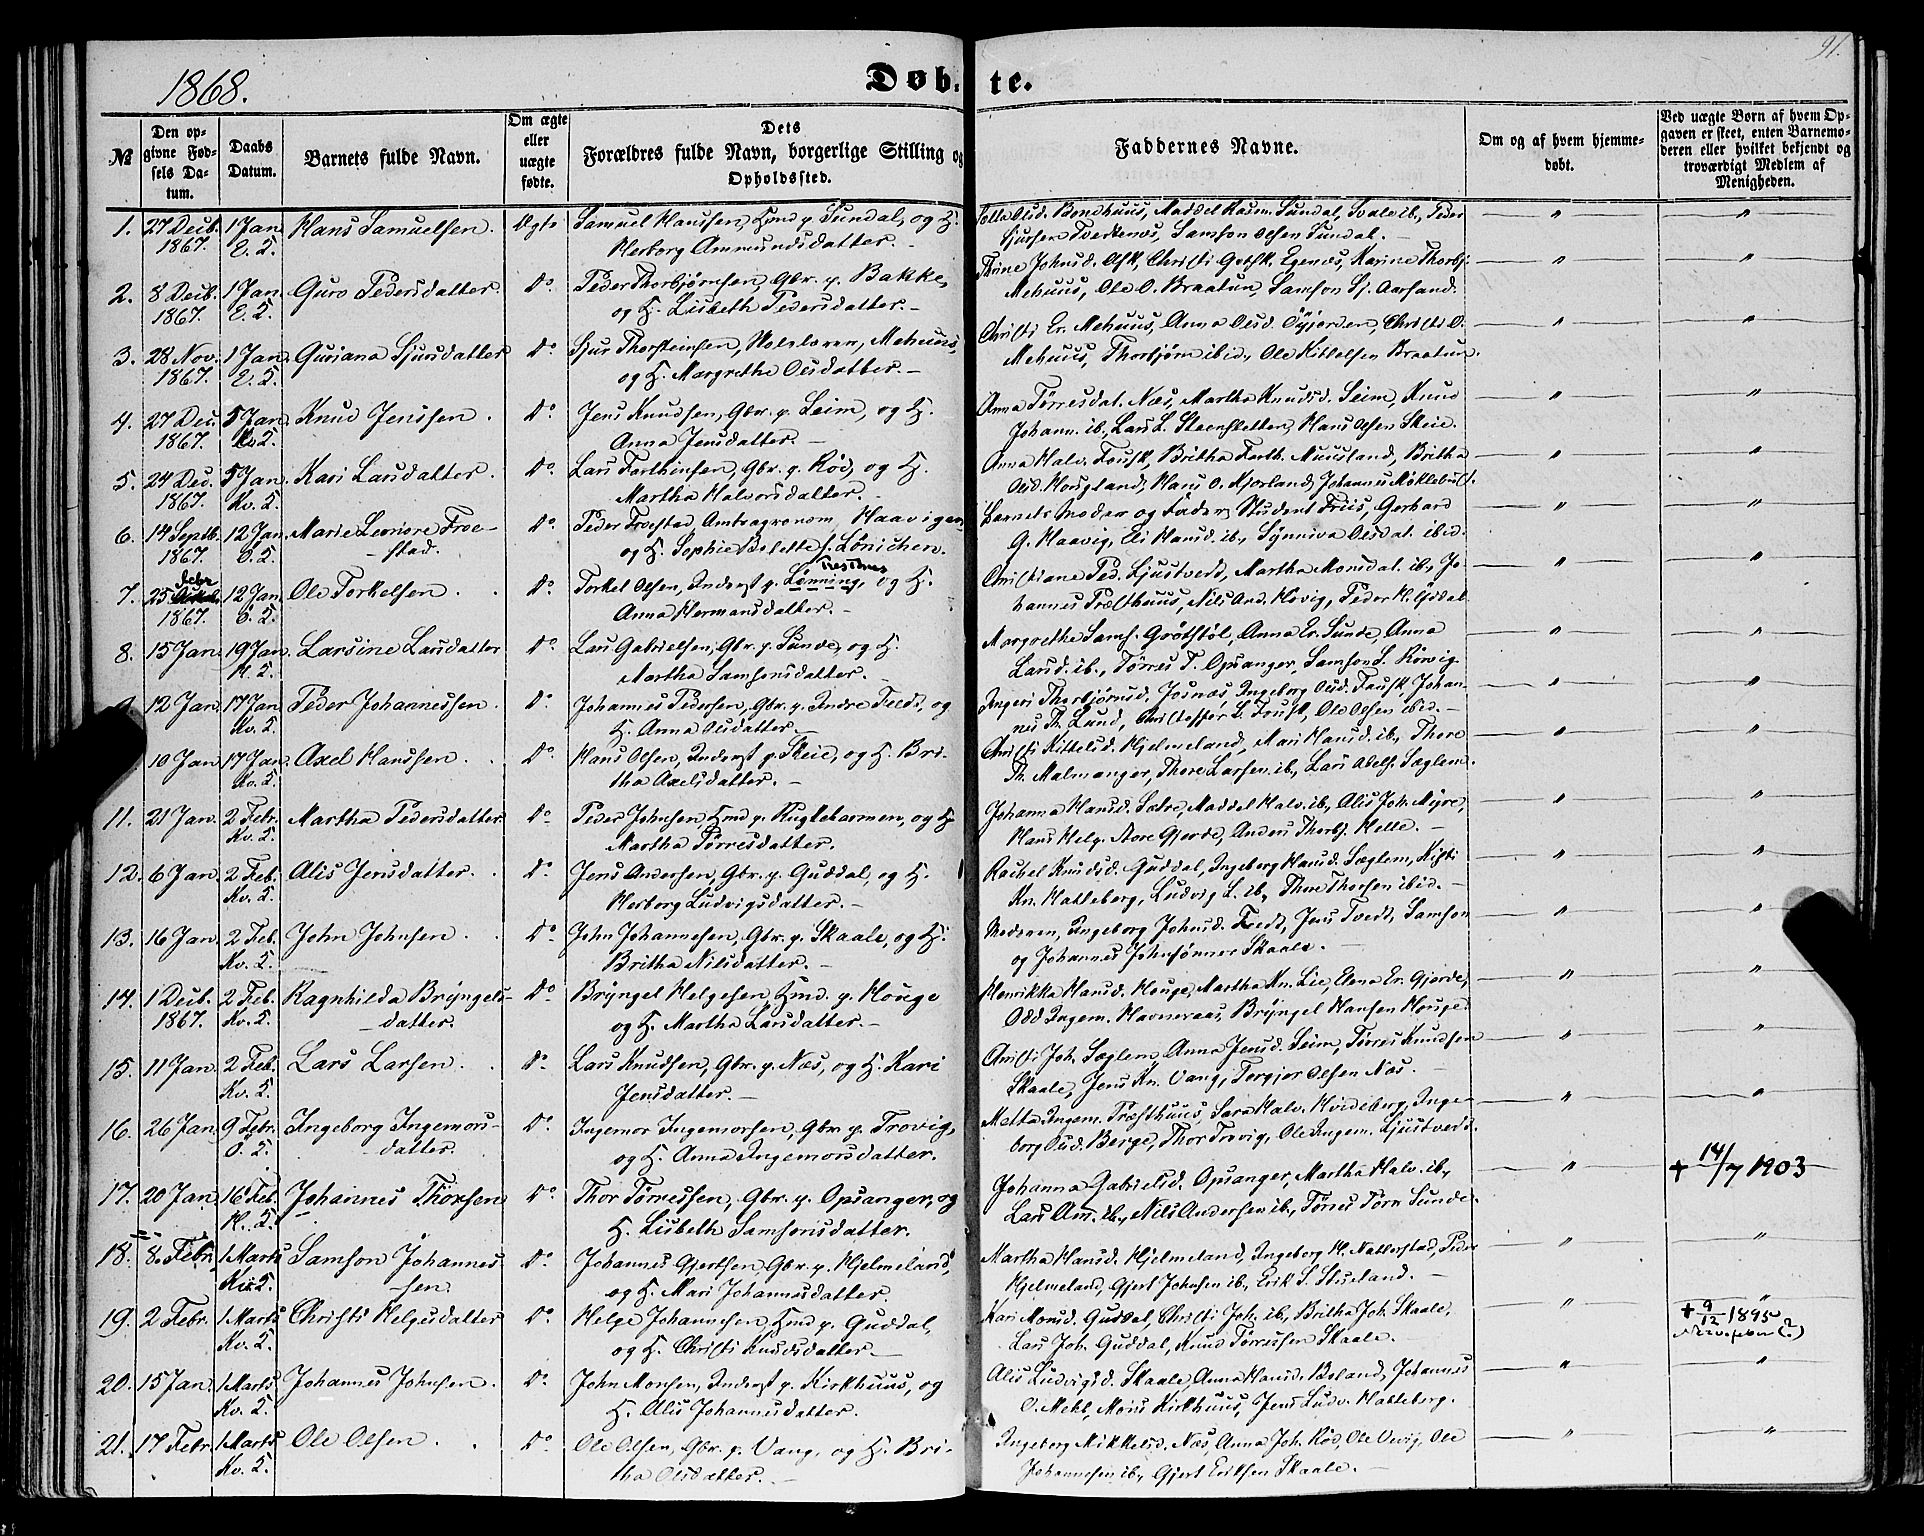 91.
1868.
Døb. te.
№
Den op-
givne Fød-
sels Da-
tum.
Daabs
Datum.
Barnets fulde Navn.
Om ægte
eller
uægte
fødte.
Dets
Forældres fulde Navn, borgerlige Stilling og
Opholdssted.
Faddernes Navne.
Om og af hvem hjemme-
døbt.
Ved uægte Børn af hvem Op-
gaven er skeet, enten Barnemo-
deren eller hvilket bekjendt og
troværdigt Medlem af
Menigheden.
1. 27 Decb. 1 Jan. Hans Samuelsen. Ægte Samuel Hanssen, Hmd p. Sundal, og H.
1867. E. T. Herborg Anmundsdatter.
Olsd. Bondhuus, Maddel Rasm. Sundal, ib., Peder
Sjursen Tveitenæs, Samson Olsen Sundal.
2. 8 Decb. 1 Jan. Guro Pedersdatter. Do Peder Thorbjørnsen, Gbr. p. Bakke,
1867. E. T. og H. Lisbeth Pedersdatter.
Johnsd. Christi Egenæs, Karine Thorbj.
Mehuus, Ole O. Braatun, Samson Sj. Aarsand.
3. 28 Nov. 1 Jan. Guriana Sjursdatter Do Sjur Thorsteinsen, Mehuus,
1867. E. T. og H. Margrethe Olsdatter.
Christi Er. Mehuus, Anna Olsd. Øyjorden, Christi O.
Mehuus, Thorbjørn ibid., Ole Kittelsen Braatun.
4. 27 Dec. 5 Jan. Knud Jenssen. Do Jens Knudsen, Gbr. p. Seim, og H.
1867. Kv. T. Anna Jensdatter.
Anna Tørresdat. Næs, Martha Knudsd. Seim, Knud
Johann. ib., Lars L. Steensletten, Hans Olsen Skeie.
5. 24 Dec. 5 Jan. Kari Larsdatter. Do Lars Farthinsen, Gbr. p. Rød, og H.
1867. Kv. T. Martha Halvorsdatter.
Anna Halv. Fousk, Britha Farth. Muusland, Britha
Olsd. Hougland, Hans O. Kjorland, Johannes Mökklebust.
6. 14 Septb. 12 Jan. Marie Leonore Froe- Do Peder Froestad, Amtsagronom, Haavigen
1867. Ö. T. -stad. og H. Sophie Bolette f. Lönichen.
Barnets Moder og Fader, Student Friis, Gerhard
G. Haavig, Eli Hansd. ib., Synniva Olsdat. ibid.
7. 25 Febr 12 Jan. Ole Torkelsen. Do Torkel Olsen, Inderst p. Lønning, og H.
1867. Ö. T. Anna Hermansdatter.
Christiane Ped. Ljustvedt, Martha Monsdat. ib., Jo-
hannes Træsthuus, Nils And. Hovig, Peder H. Uddal.
8. 15 Jan. 19 Jan. Larsine Larsdatter Do Lars Gabrielsen, Gbr. p. Sunde, og H.
H. T. Martha Samsonsdatter.
Margrethe Sams. Grøtstøl, Anna Er. Sunde, Anna
Larsd. ib., Tørres T. Opsanger, Samson S. Rørvig.
12 Jan. 17 Jan. Peder Johannessen. Do Johannes Pedersen, Gbr. p. Indre Tvedt, og
Kv. T. H. Anna Olsdatter.
Ingeri Thorbjørnsd. Josnæs, Ingeborg Olsd. Fousk, Johan-
nes Th. Lund, Christoffer L. Fousk, Ole Olsen ibid.
10 Jan. 17 Jan. Axel Hanssen. Do Hans Olsen, Inderst p. Skeie, og H. Bri-
Kv. T. tha Axelsdatter.
Christi Kittelsd. Hjelmeland, Mari Hansd. ib., Thore
Th. Malmanger, Thore Larsen ib., Lars Adelst. Sæglem.
11. 21 Jan. 2 Febr. Martha Pedersdatter. Do Peder Johnsen, Hmd p. Kuglebarmen, og H.
Kv. T. Martha Tørresdatter.
Johanna Hansd. Sætre, Maddel Halv. ib., Alis Joh. Myre,
Hans Helg. Store Gjerde, Anders Thorbj. Helle.
12. 6 Jan. 2 Feb. Alis Jensdatter. Do Jens Andersen, Gbr. p. Guddal, og H.
Kv. T. Herborg Ludvigsdatter.
Rachel Knudsd. Guddal, Ingeborg Hansd. Sæglem, Kisti
Kn. Hatleberg, Ludvig L. ib., Thore Thorsen ibid.
13. 16 Jan. 2 Feb. John Johnsen. Do John Johannesen, Gbr. p. Skaale, og H.
Kv. T. Britha Nilsdatter.
Moderen, Ingeborg Johnsd. Tvedt, Jens Tvedt, Samson
og Johannes Johnsønner Skaale.
14. 1 Decb. 2 Feb. Ragnhilda Bryngels- Do Bryngel Helgesen, Hmd. p. Houge
1867. Kv. T. datter. og H. Martha Larsdatter.
Henrikka Hansd. Houge, Martha Kn. Lie, Elena Er. Gjerde,
Odd Ingem. Havneraas, Bryngel Hansen Houge.
15. 11 Jan. 2 Feb. Lars Larsen. Do Lars Knudsen, Gbr. p. Næs, og H. Kari
Kv. T. Jensdatter.
Christi Joh. Sæglem, Anna Jensd. Seim, Tørres Knudsen
Skaale, Jens Kn. Vang, Torgjer Olsen Næs.
16. 26 Jan. 9 Febr. Ingeborg Ingemors- Do Ingemor Ingemorsen, Gbr. p. Trovig,
Ö. T. datter. og H. Anna Ingemorsdatter.
Metta Ingem. Træsthuus, Sara Halv. Hvideberg, Inge-
borg Olsd. Berge, Thor Trovig, Ole Ingem. Ljustvedt.
17. 20 Jan. 16 Feb. Johannes Thorsen Do Thor Tørressen, Gbr. p. Opsanger, og
H. T. H. Lisbeth Samsonsdatter.
Johanna Gabrielsd. Opsanger, Martha Halv. ib.,
Lars Am. ib., Nils Andersen ib., Tørres Törr. Sunde.
+ 14/7 1903
18. 8. Febr. 1 Marts Samson Johannes- Do Johannes Gjertsen, Gbr. p. Hjelmeland,
Kv. T. sen. og H. Mari Johannesdatter.
Martha Hansd. Hjelmeland, Ingeborg H. Natterstad, Peder
Hjelmeland, Gjert Johnsen ib., Erik S. Stueland.
19. 2 Febr. 1 Marts Christi Helgesdatter Do Helge Johannesen, Hmd p. Guddal,
Kv. T. og H. Christi Knudsdatter.
Kari Monsd. Guddal, Christi Joh. ib., Britha Joh. Skaale,
Lars Joh. Guddal, Knud Tørressen Skaale.
+ 9/12 1895
Nervefeber (?)
20. 15 Jan. 1 Marts Johannes Johnsen. Do John Monsen, Inderst p. Kirkhuus, og
Kv. T. H. Alis Johannesdatter.
Alis Ludvigsd. Skaale, Anna Hansd. Beland, Johannes
O. Mehl, Mons Kirkhuus, Jens Ludv. Hatleberg.
21. 17 Febr. 1 Marts Ole Olsen. Do Ole Olsen, Gbr. p. Vang, og H. Bri-
Kv. T. tha Olsdatter.
Ingeborg Mikkelsd. Næs, Anna Joh. Rød, Ole Ulvig, Ole
Johannesen ib., Gjert Eriksen Skaale.